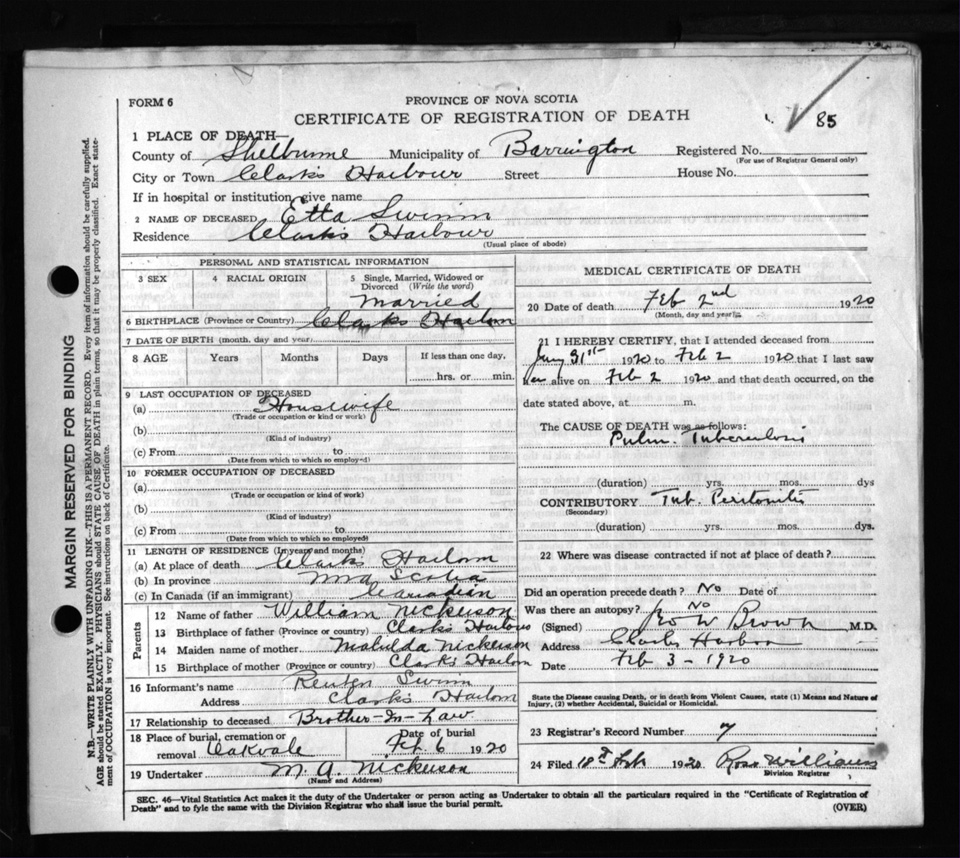 FORM 6
PROVINCE OF NOVA SCOTIA
CERTIFICATE OF REGISTRATION OF DEATH
85
1 PLACE OF DEATH—
County of Shelburne Municipality of Barrington Registered No.
(For use of Registrar General only)
City or Town Clarks Harbour Street House No.
If in hospital or institution, give name
2 NAME OF DECEASED Etta Swim
Residence Clark's Harbour
(Usual place of abode)
PERSONAL AND STATISTICAL INFORMATION
3 SEX 4 RACIAL ORIGIN 5 Single, Married, Widowed or
Divorced (Write the word)
Married
6 BIRTHPLACE (Province or Country) Clarks Harbour
7 DATE OF BIRTH (month, day and year)
8 AGE Years Months Days If less than one day,
hrs. or min.
9 LAST OCCUPATION OF DECEASED
(a) Housewife
(Trade or occupation or kind of work)
(b)
(Kind of industry)
(c) From to
(Date from which to which so employed)
10 FORMER OCCUPATION OF DECEASED
(a)
(Trade or occupation or kind of work)
(b)
(Kind of industry)
(c) From to
(Date from which to which so employed)
11 LENGTH OF RESIDENCE (In years and months)
(a) At place of death Clarks Harbour
(b) In province Nova Scotia
(c) In Canada (if an immigrant) Canadian
Parents
12 Name of father William Nickerson
13 Birthplace of father (Province or country) Clarks Harbour
14 Maiden name of mother Matulda Nickerson
15 Birthplace of mother (Province or country) Clark's Harbour
16 Informant's name Reuben Swim
Address Clark's Harbour
17 Relationship to deceased Brother-In-Law
18 Place of burial, cremation or removal Oakvale Date of burial Feb. 6 1920
19 Undertaker M. A. Nickerson
(Name and Address)
MEDICAL CERTIFICATE OF DEATH
20 Date of death Feb 2nd 1920
(Month, day and year)
21 I HEREBY CERTIFY, that I attended deceased from
Jany 31st 1920 to Feb 2 1920 that I last saw
her alive on Feb 2 1920 and that death occurred, on the
date stated above, at m.
The CAUSE OF DEATH was as follows:
Pulm. Tuberculosis
(duration) yrs. mos. dys
CONTRIBUTORY Tub. Peritonitis
(Secondary)
(duration) yrs. mos. dys.
22 Where was disease contracted if not at place of death?
Did an operation precede death? No Date of
Was there an autopsy? No
(Signed) Brown M.D.
Address Clarks Harbour
Date Feb 3 - 1920
State the Disease causing Death, or in death from Violent Causes, state (1) Means and Nature of
Injury, (2) whether Accidental, Suicidal or Homicidal.
23 Registrar's Record Number 7
24 Filed 18th Feb 1920 Ross Williams
Division Registrar
SEC. 46—Vital Statistics Act makes it the duty of the Undertaker or person acting as Undertaker to obtain all the particulars required in the "Certificate of Registration of
Death" and to fyle the same with the Division Registrar who shall issue the burial permit.
(OVER)
MARGIN RESERVED FOR BINDING
N.B.—WRITE PLAINLY WITH UNFADING INK—THIS IS A PERMANENT RECORD. Every item of information should be carefully supplied.
AGE should be stated EXACTLY. PHYSICIANS should STATE CAUSE OF DEATH in plain terms, so that it may be properly classified. Exact state-
ment of OCCUPATION is very important. See instructions on back of Certificate.